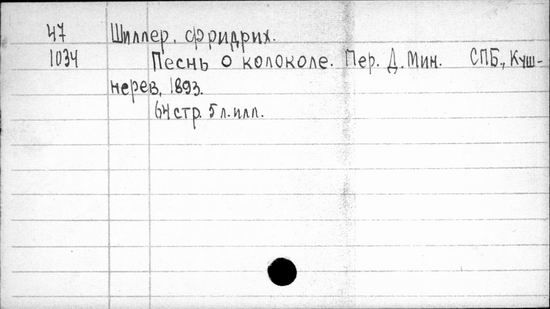 47 Шиллер, Фридрих.
1034 Песнь о колоколе. Пер. Д. Мин. СПБ., Куш-
нерев, 1893.
64 стр. 5 л. илл.